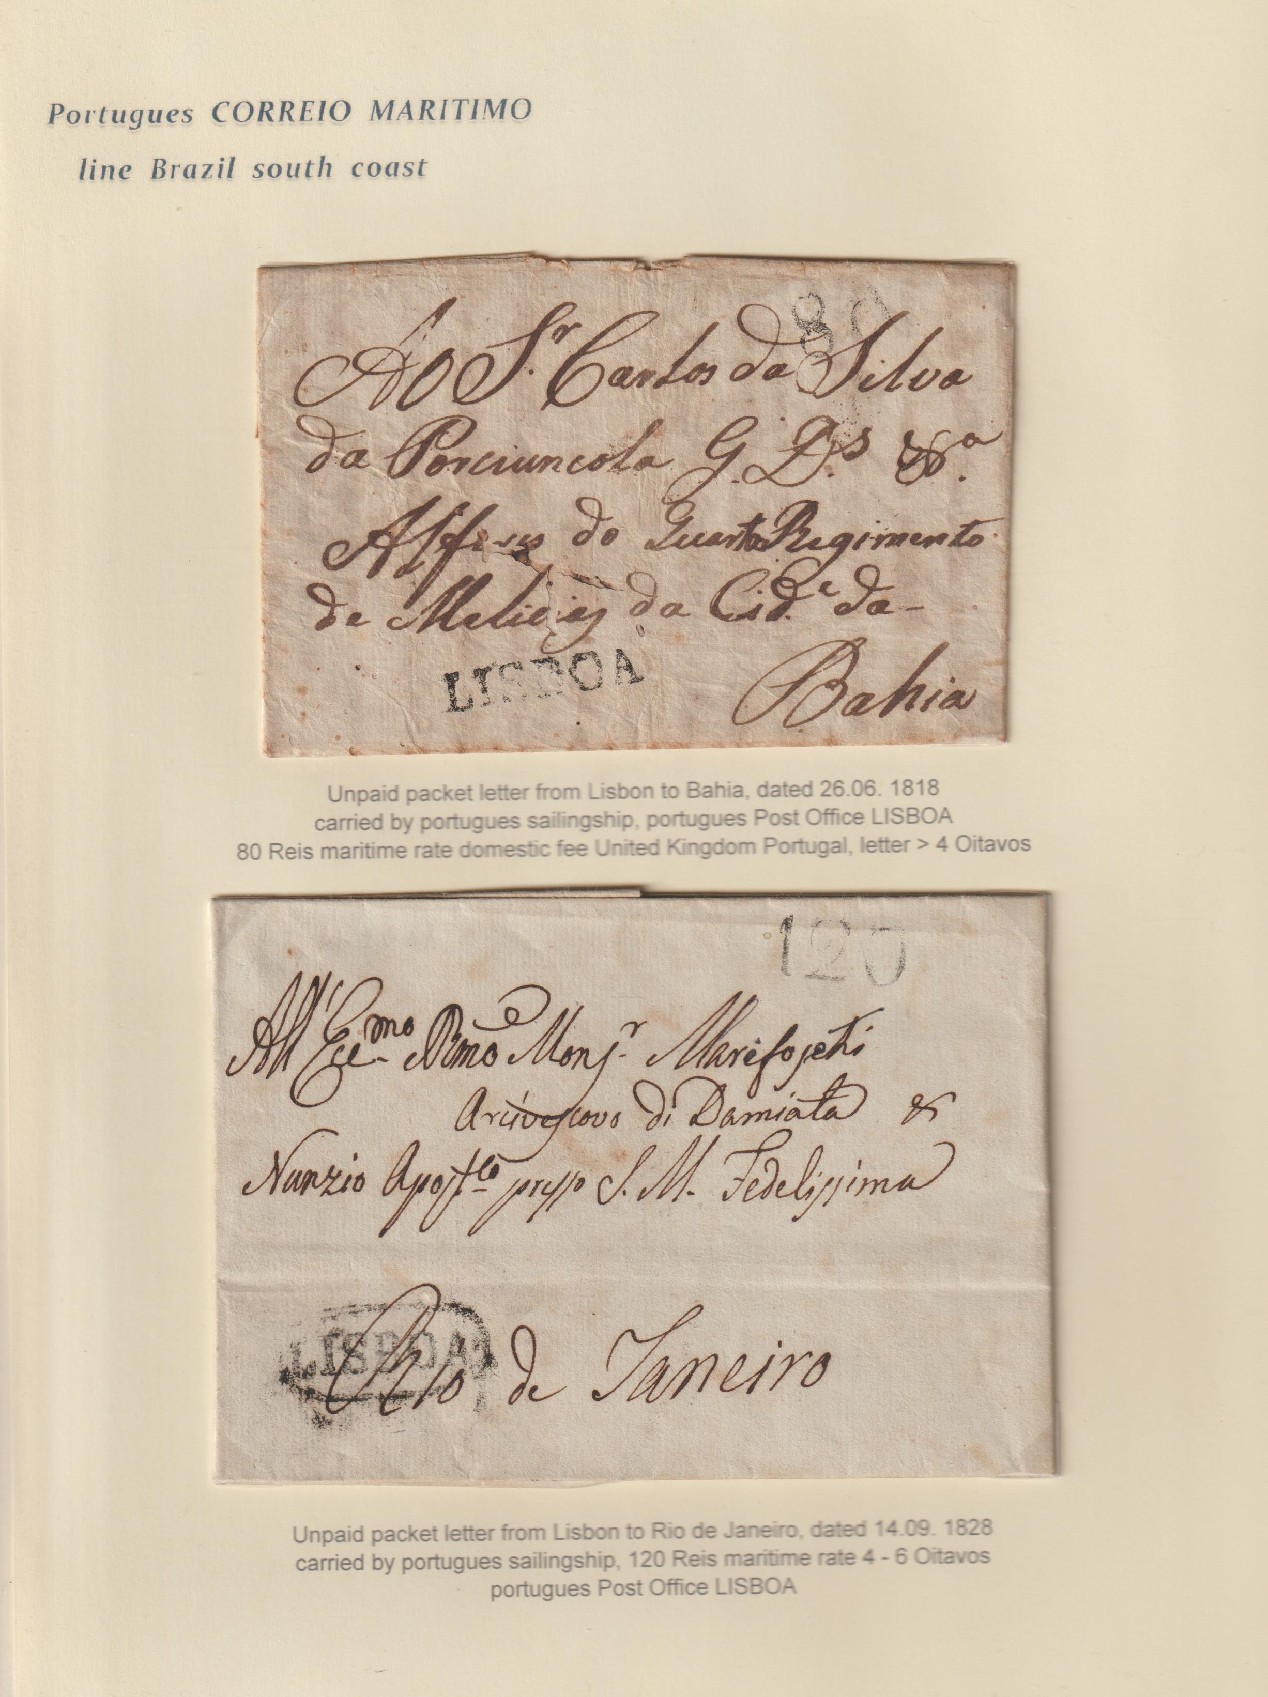 Portugues CORREIO MARITIMO
line Brazil south coast
80
AO S.r Carlos da Silva
da Porciuncola G. D.s &.a
Alferes do Quarto Regimento
de Melicias da Cid.e da-
LISBOA
Bahia
Unpaid packet letter from Lisbon to Bahia, dated 26.06. 1818
carried by portugues sailingship, portugues Post Office LISBOA
80 Reis maritime rate domestic fee United Kingdom Portugal, letter > 4 Oitavos
120
All' Ecc.mo Rmo e Monsr. Marefoschi
Arcivescovo di Damiata &
Nunzio Apost.co presso S. M. Fedelissima
LISBOA
Rio de Janeiro
Unpaid packet letter from Lisbon to Rio de Janeiro, dated 14.09. 1828
carried by portugues sailingship, 120 Reis maritime rate 4 - 6 Oitavos
portugues Post Office LISBOA